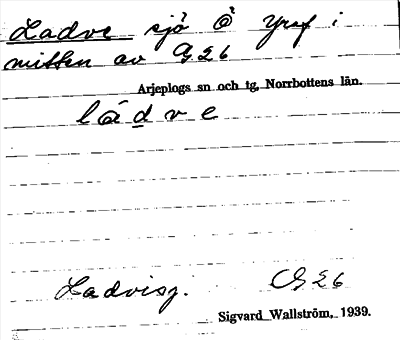 Ladve sjö Ö Yraf i
mitten av G26
Arjeplogs sn och tg, Norrbottens län.
ládve
Ladvisj. G26
Sigvard Wallström, 1939.